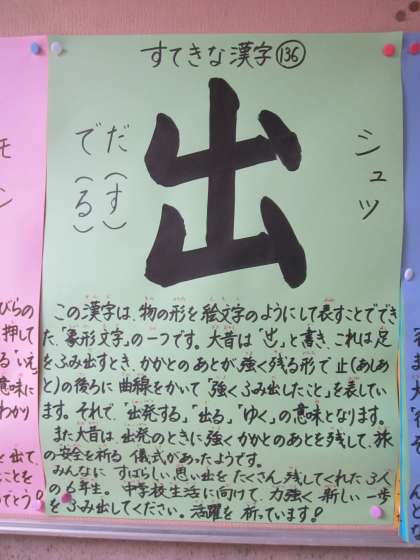 すてきな漢字 136
出
シュツ
だ(す)
で(る)
この漢字は、物の形を絵文字のようにして表すことでで
きた「象形文字」の一つです。大昔は「㞢」と書き、これは足
をふみ出すとき、かかとのあとが強く残る形で止(あしあ
と)の後ろに曲線をかいて「強くふみ出したこと」を表してい
ます。それで、「出発する」「出る」「ゆく」の意味となります。
また大昔は、出発のときに強くかかとのあとを残して、旅
の安全を祈る儀式があったようです。
みんなに すばらしい思い出を たくさん残してくれた3人
の6年生。中学校生活に向けて、力強く新しい一歩
をふみ出してください。活躍を祈っています!
モ
ン
びらの
押して
る「いえ
意味に
わかり
を出て、
ことを
でとう!